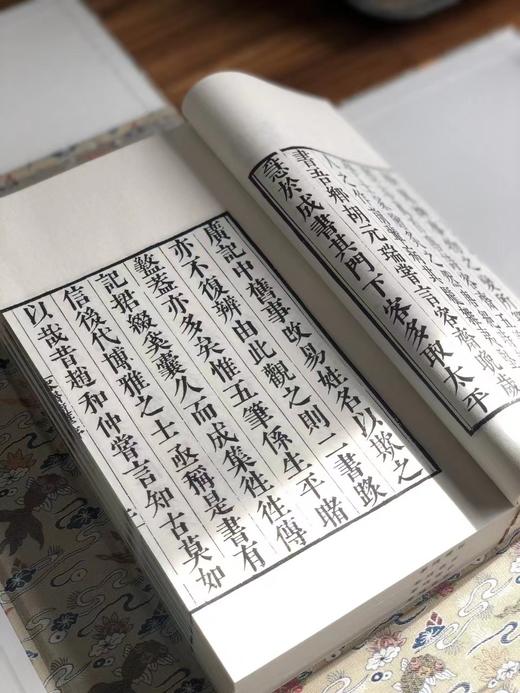 書吾鄉胡元瑞嘗言容齋晚歲
急於成書其門下客多取太平
廣記中舊事改易姓名以欺之
亦不復辨由此觀之則二書踳
盭葢亦多矣惟五筆係生平睹
記綴奚囊久而成集徃徃傳
信後代博雅之士亟稱是書有
以哉昔趙和仲嘗言知古莫如